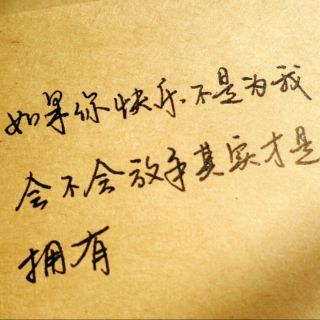 如果你快乐不是为我
会不会放手其实才是
拥有